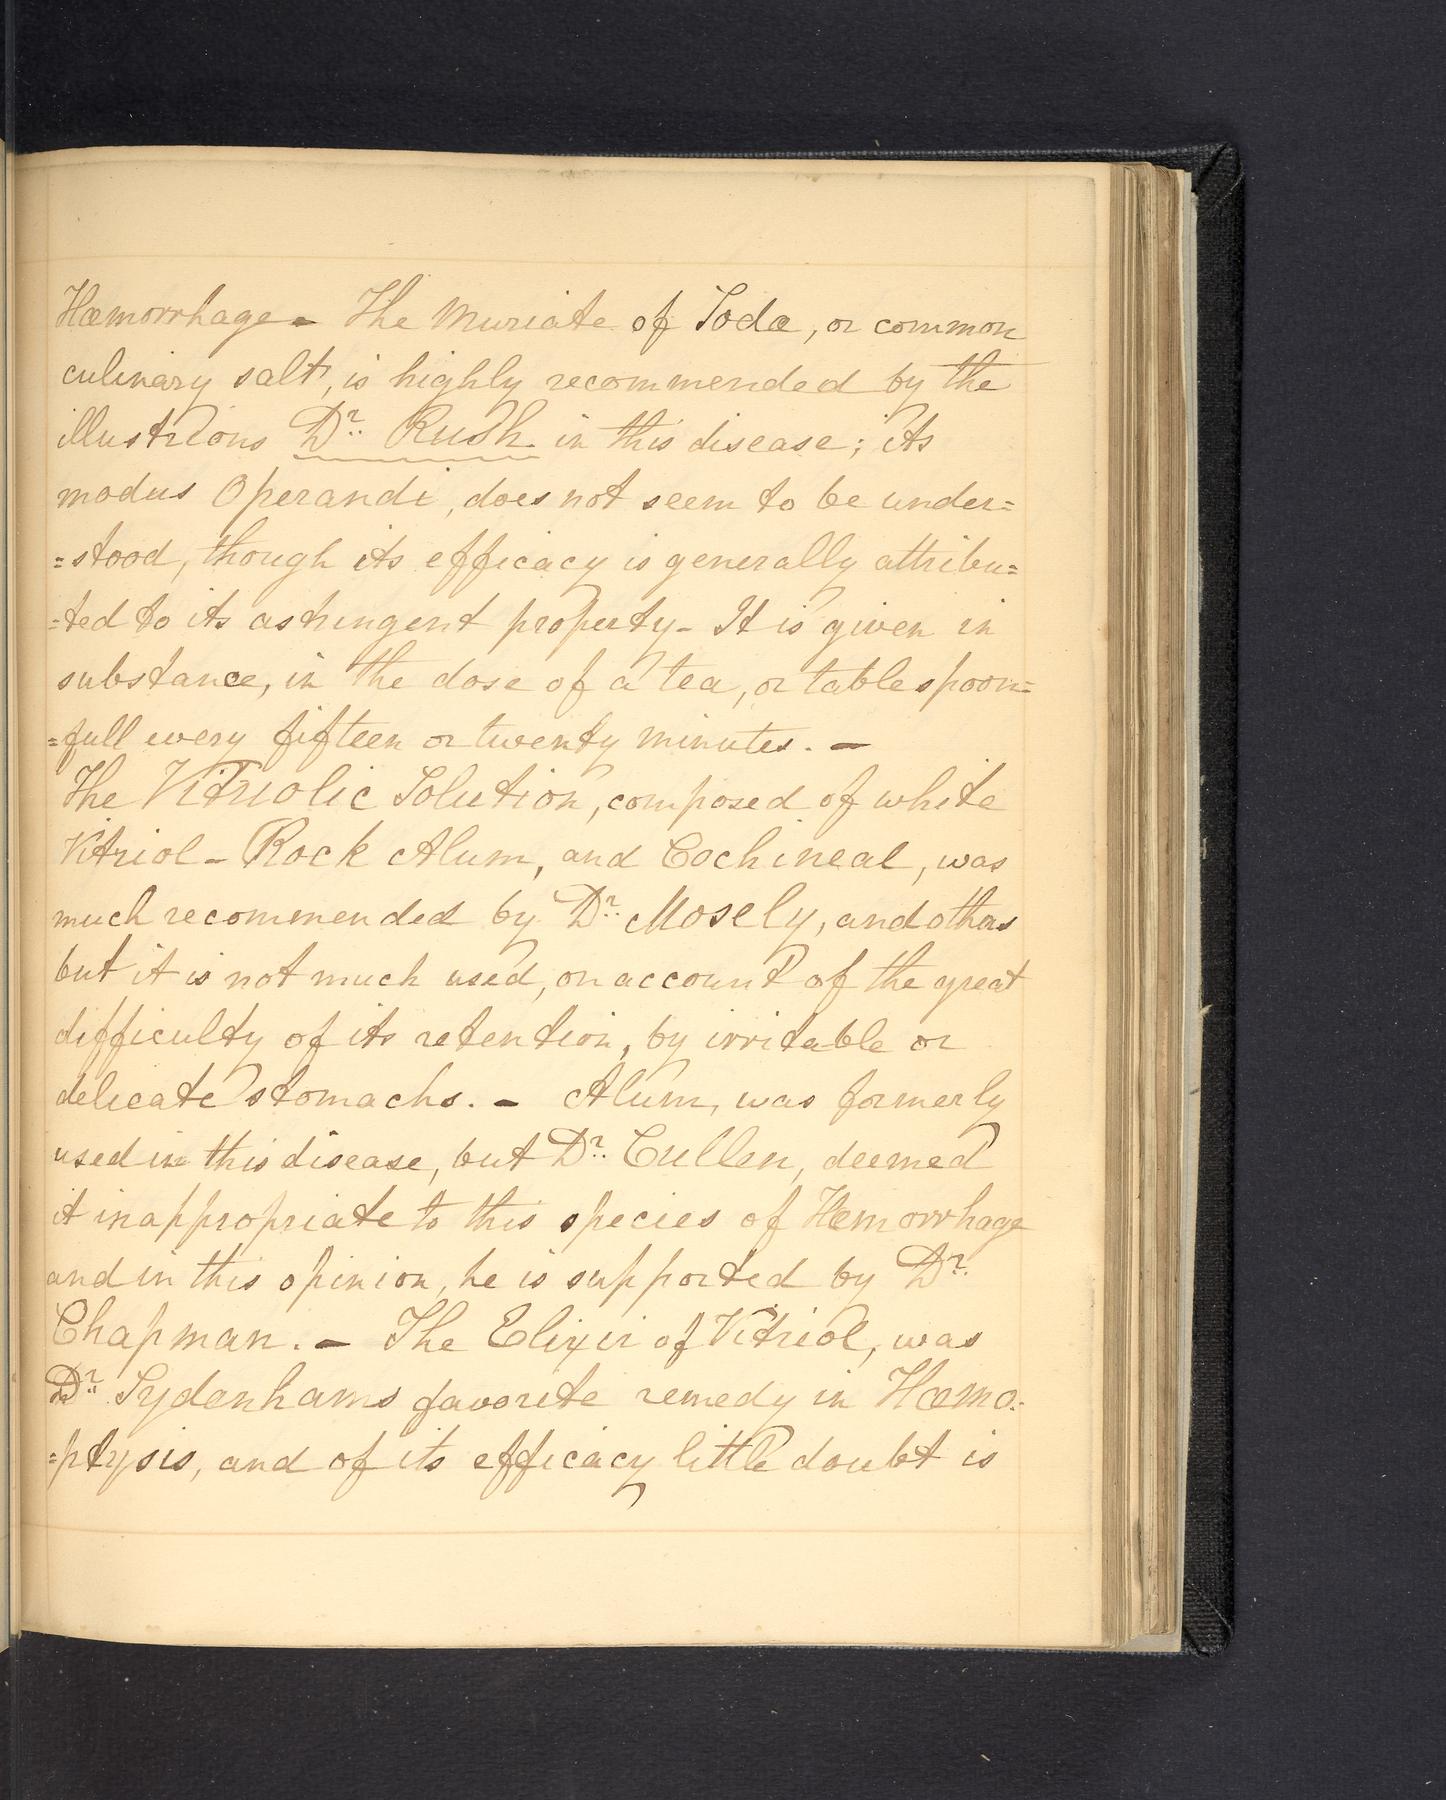 Hæmorrhage - The Muriate of Soda, or common
culinary salt, is highly recommended by the
illustrious Dr. Rush in this disease; its
modus Operandi, does not seem to be under=
=stood, though its efficacy is generally attribu=
=ted to its astringent property - It is given in
substance, in the dose of a tea, or table spoon=
=full every fifteen or twenty minutes. -
The Vitriolic Solution, composed of white
Vitriol - Rock Alum, and Cochineal, was
much recommended by Dr. Mosely, and others
but it is not much used, on account of the great
difficulty of its retention, by irritable or
delicate stomachs. - Alum, was formerly
used in this disease, but Dr. Cullen, deemed
it inappropriate to this species of Hæmorrhage
and in this opinion, he is supported by Dr.
Chapman. - The Elixir of Vitriol, was
Dr. Sydenhams favorite remedy in Hæmo=
=ptysis, and of its efficacy little doubt is